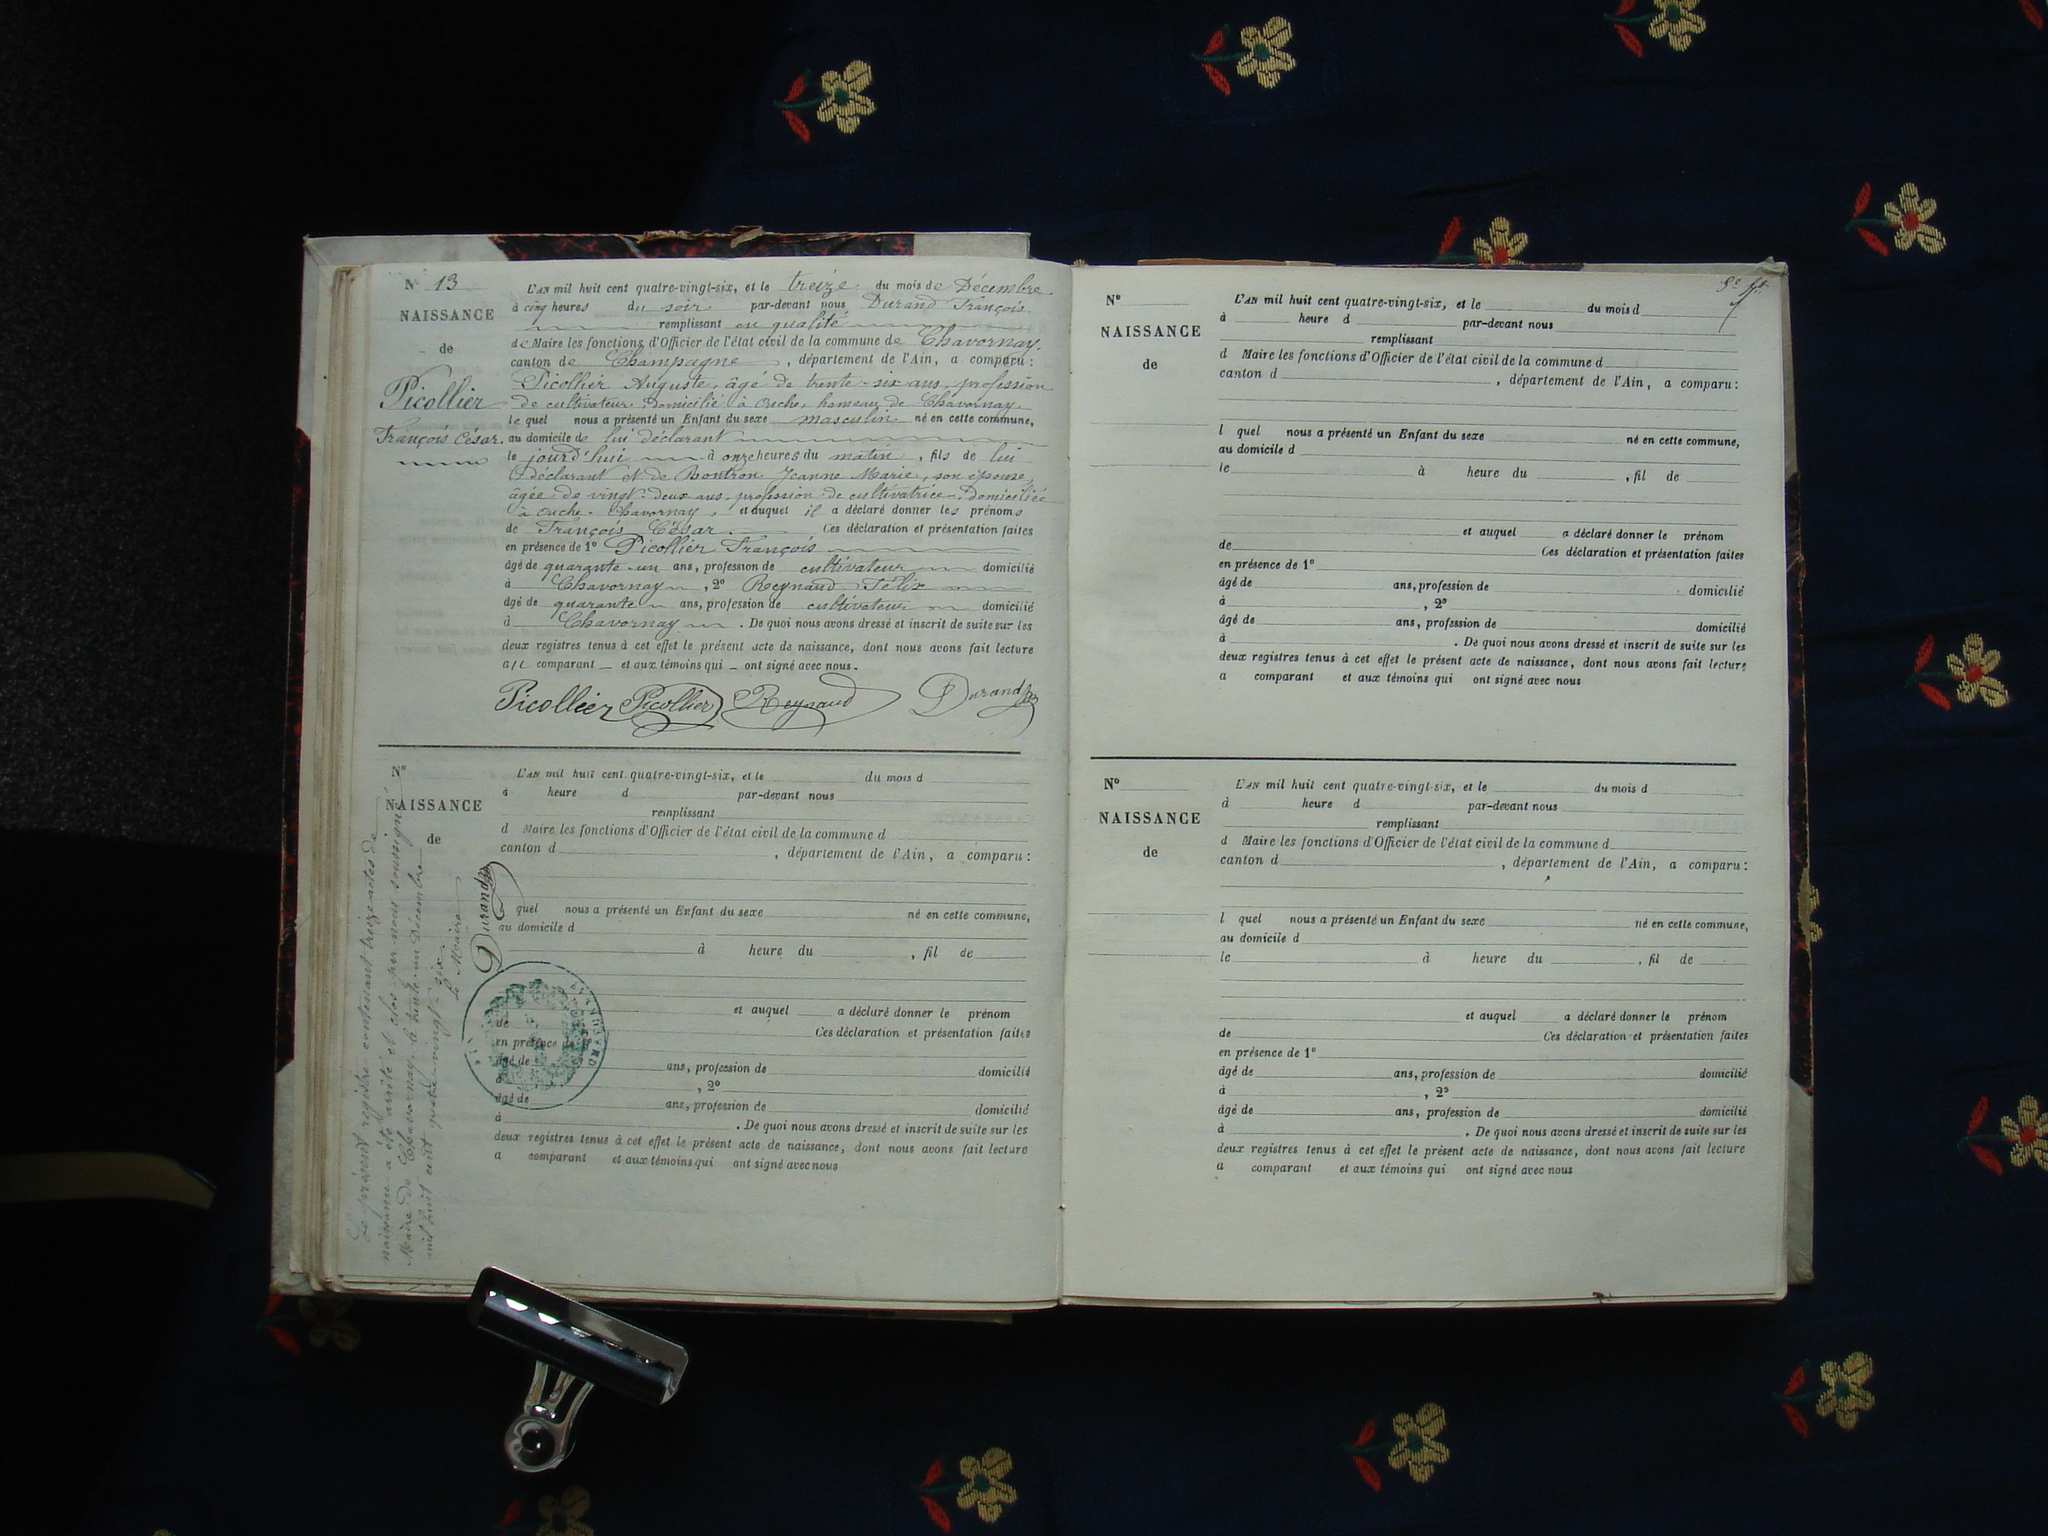 N° 13
NAISSANCE
de
Picollier
François César.
L'AN mil huit cent quatre-vingt-six, et le treize du mois de Décembre
à cinq heures du soir par-devant nous Durand François
remplissant en qualité
de Maire les fonctions d'Officier de l'état civil de la commune de Chavornay,
canton de Champagne, département de l'Ain, a comparu:
Picollier Auguste, âgé de trente-six ans, profession
de cultivateur, domicilié à Ouche, hameau de Chavornay,
le quel nous a présenté un Enfant du sexe masculin né en cette commune,
au domicile de lui déclarant
le jourd'hui à onze heures du matin, fils de lui
déclarant et de Bontron Jeanne Marie, son épouse,
âgée de vingt-deux ans, profession de cultivatrice, domiciliée
à Ouche, Chavornay, et auquel il a déclaré donner les prénoms
de François César. Ces déclaration et présentation faites
en présence de 1° Picollier François
âgé de quarante-un ans, profession de cultivateur domicilié
à Chavornay, 2° Reynaud Félix
âgé de quarante ans, profession de cultivateur domicilié
à Chavornay. De quoi nous avons dressé et inscrit de suite sur les
deux registres tenus à cet effet le présent acte de naissance, dont nous avons fait lecture
au comparant et aux témoins qui ont signé avec nous.
Picollier Picollier Reynaud Durand
N°
NAISSANCE
de
L'AN mil huit cent quatre-vingt-six, et le du mois d
à heure d par-devant nous
remplissant
d Maire les fonctions d'Officier de l'état civil de la commune d
canton d , département de l'Ain, a comparu:
quel nous a présenté un Enfant du sexe né en cette commune,
au domicile d
à heure du , fil de
et auquel a déclaré donner le prénom
de Ces déclaration et présentation faites
en présence
âgé de ans, profession de domicilié
, 2°
âgé de ans, profession de domicilié
à . De quoi nous avons dressé et inscrit de suite sur les
deux registres tenus à cet effet le présent acte de naissance, dont nous avons fait lecture
a comparant et aux témoins qui ont signé avec nous
Le présent registre contenant treize actes de
naissance a été arrêté et clos par nous soussigné
Maire de Chavornay, le trente-un Décembre
mil huit cent quatre-vingt-six.
Le Maire
Durand
N°
NAISSANCE
de
L'AN mil huit cent quatre-vingt-six, et le du mois d
à heure d par-devant nous
remplissant
d Maire les fonctions d'Officier de l'état civil de la commune d
canton d , département de l'Ain, a comparu:
l quel nous a présenté un Enfant du sexe né en cette commune,
au domicile d
le à heure du , fil de
et auquel a déclaré donner le prénom
de Ces déclaration et présentation faites
en présence de 1°
âgé de ans, profession de domicilié
à , 2°
âgé de ans, profession de domicilié
à . De quoi nous avons dressé et inscrit de suite sur les
deux registres tenus à cet effet le présent acte de naissance, dont nous avons fait lecture
a comparant et aux témoins qui ont signé avec nous
N°
NAISSANCE
de
L'AN mil huit cent quatre-vingt-six, et le du mois d
à heure d par-devant nous
remplissant
d Maire les fonctions d'Officier de l'état civil de la commune d
canton d , département de l'Ain, a comparu:
l quel nous a présenté un Enfant du sexe né en cette commune,
au domicile d
le à heure du , fil de
et auquel a déclaré donner le prénom
de Ces déclaration et présentation faites
en présence de 1°
âgé de ans, profession de domicilié
à , 2°
âgé de ans, profession de domicilié
à . De quoi nous avons dressé et inscrit de suite sur les
deux registres tenus à cet effet le présent acte de naissance, dont nous avons fait lecture
a comparant et aux témoins qui ont signé avec nous